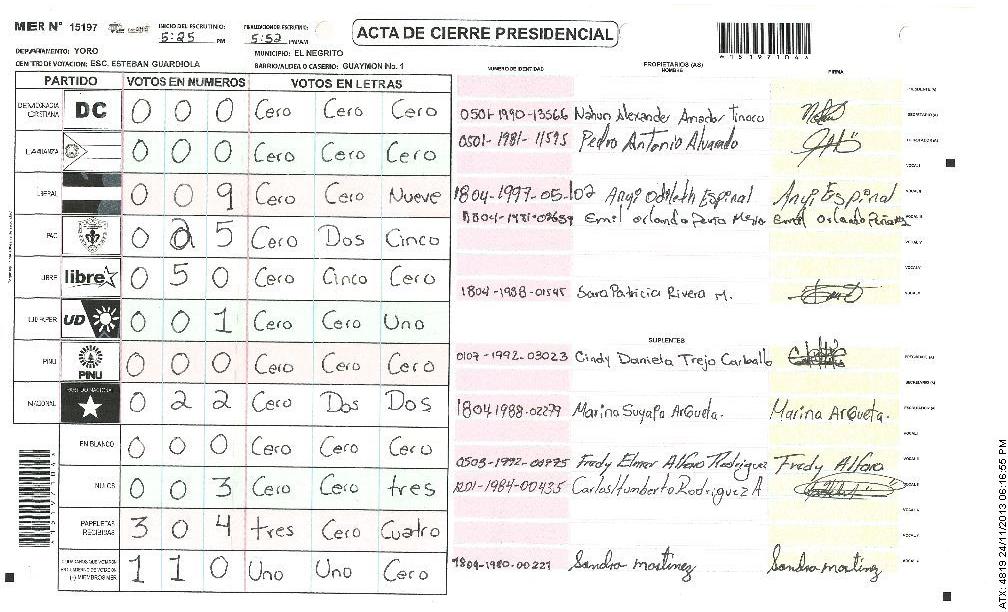 MER Nº 15197 INICIO DEL ESCRUTINIO: 5:25 PM FINALIZACION ESCRUTINIO: 5:52 PM/AM
ACTA DE CIERRE PRESIDENCIAL
DEPARTAMENTO: YORO MUNICIPIO: EL NEGRITO
CENTRO DE VOTACION: ESC. ESTEBAN GUARDIOLA BARRIO/ALDEA O CASERIO: GUAYMON No. 1
PARTIDO VOTOS EN NUMEROS VOTOS EN LETRAS
DEMOCRACIA CRISTIANA DC 0 0 0 Cero Cero Cero
0 0 0 Cero Cero Cero
LIBERAL 0 0 9 Cero Cero Nueve
PAC 0 2 5 Cero Dos Cinco
LIBRE libre 0 5 0 Cero Cinco Cero
UD 0 0 1 Cero Cero Uno
PINU PINU 0 0 0 Cero Cero Cero
NACIONAL PARTIDO NACIONAL 0 2 2 Cero Dos Dos
EN BLANCO 0 0 0 Cero Cero Cero
NULOS 0 0 3 Cero Cero tres
PAPELETAS RECIBIDAS 3 0 4 tres Cero Cuatro
1 1 0 Uno Uno Cero
NUMERO DE IDENTIDAD PROPIETARIOS (AS) NOMBRE FIRMA
0501-1990-13566 Nahun Alexander Amador Tinoco
0501-1981-11595 Pedro Antonio Alvarado
1804-1997-05102 Angi Odileth Espinal Angi Espinal
Emil Orlando Emil Orlando
1804-1988-01545 Sara Patricia Rivera M.
SUPLENTES
0107-1992-03023 Cindy Daniela Trejo Carballo
1804 1988-02279 Marina Suyapa Argueta. Marina Argueta.
0503-1992-00975 Fredy Elmer Alfaro Rodriguez Fredy Alfaro
1201-1984-00435 Carlos Humberto Rodriguez A
1804-1980-00227 Sandra martinez Sandra martinez
ATX: 4819 24/11/2013 06:16:55 PM